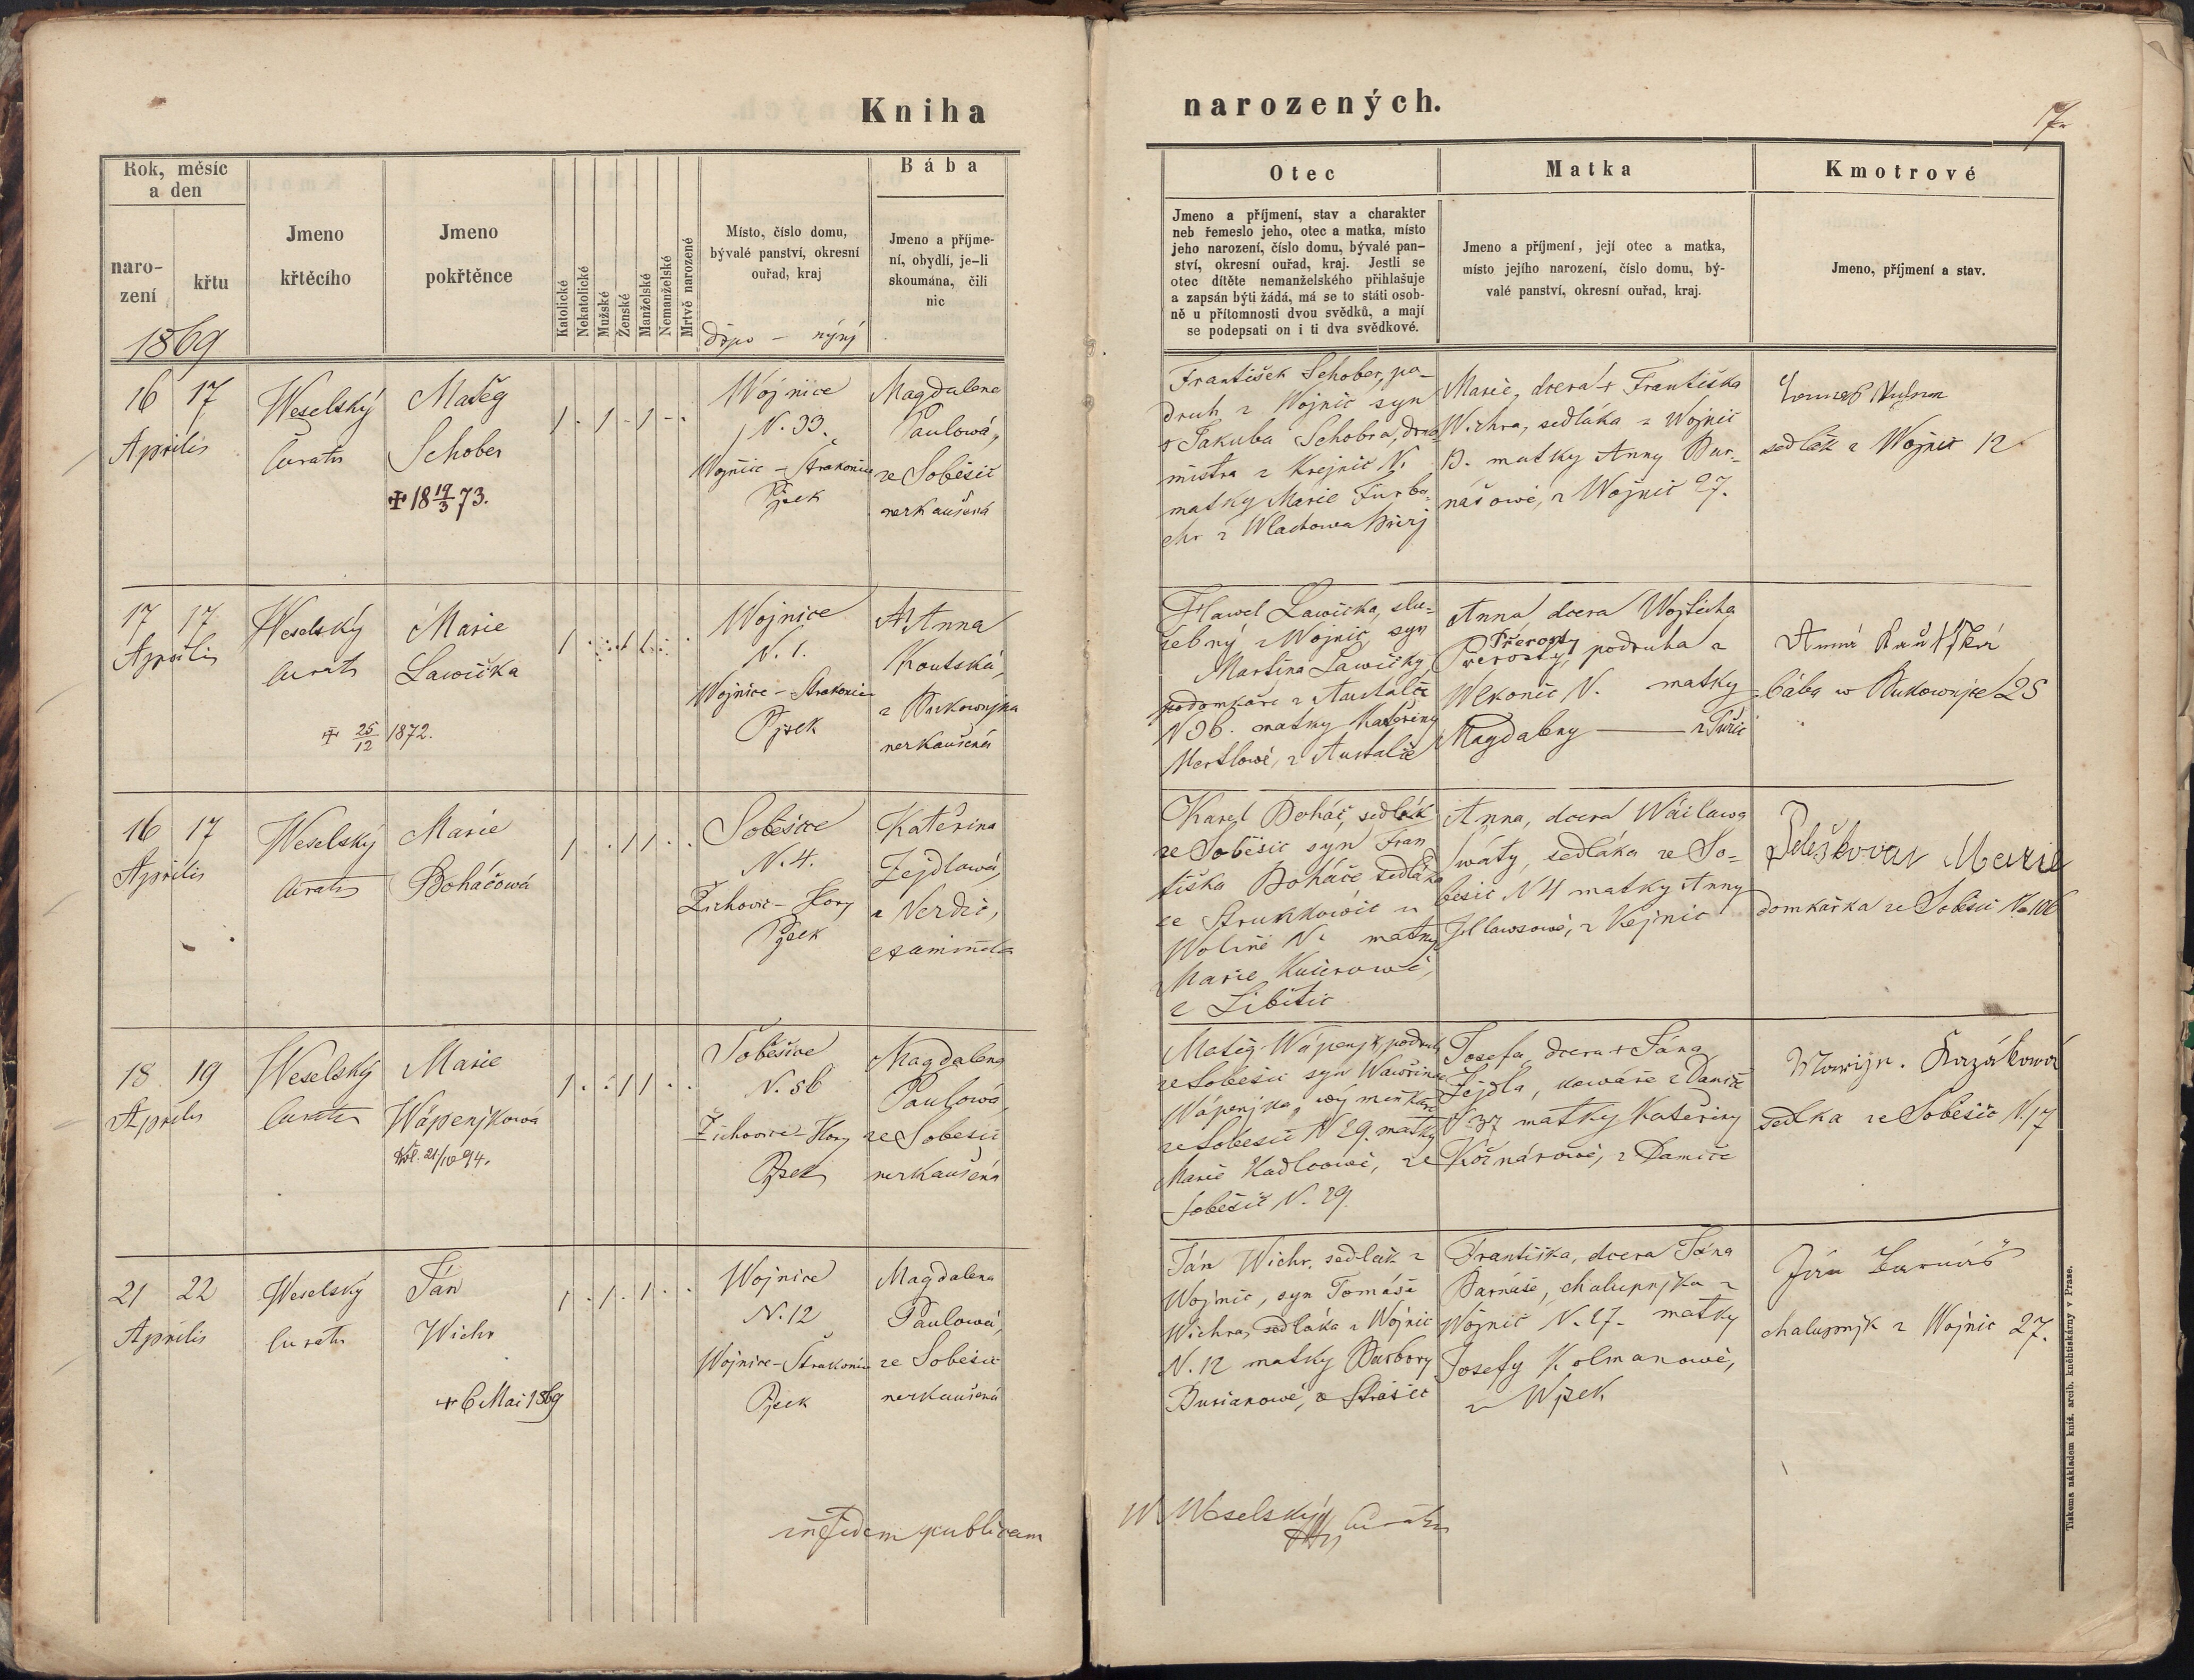 Kniha
narozených.
17
Rok, měsíc
a den
naro-
zení
křtu
1869
Jmeno
křtěcího
Jmeno
pokřtěnce
Katolické
Nekatolické
Mužské
Ženské
Manželské
Nemanželské
Mrtvě narozené
Místo, číslo domu,
bývalé panství, okresní
ouřad, kraj
Bába
Jmeno a příjme-
ní, obydlí, je-li
skoumána, čili
nic
Otec
Jmeno a příjmení, stav a charakter
neb řemeslo jeho, otec a matka, místo
jeho narození, číslo domu, bývalé pan-
ství, okresní ouřad, kraj. Jestli se
otec dítěte nemanželského přihlašuje
a zapsán býti žádá, má se to státi osob-
ně u přítomnosti dvou svědků, a mají
se podepsati on i ti dva svědkové.
Matka
Jmeno a příjmení, její otec a matka,
místo jejího narození, číslo domu, bý-
valé panství, okresní ouřad, kraj.
Kmotrové
Jmeno, příjmení a stav.
16 17
Aprilis
Weselský
Curatus
Matěg
Schober
✠ 18 19/3 73.
1 . 1 . 1 . .
Wojnice
N. 33.
Wojnice - Strakonice
Pjsek
Magdalena
Paulowá,
ze Soběšic
nezkaušená
František Schober, po-
druh z Wojnic syn
+ Jakuba Schobra,
mistra z Krejnic N.
matky Marie
z Wlachowa Březj
Marie, dcera + Františka
Wichra, sedláka z Wojnic
12. matky Anny Bar-
nášowé, z Wojnic 27.
sedlák z Wojnic 12
17 17
Aprilis
Weselský
Curatus
Marie
Lawička
✠ 25/12 1872.
1 . . 1 1 . .
Wojnice
N. 1.
Wojnice - Strakonice
Pjsek
Anna
Koutská,
z Bukownjka
nezkaušená
Hawel Lawička, slu-
žebný z Wojnic, syn
Martina Lawičky,
podomkáře z Austalče
N 36. matky Kateřiny
Mertlowé, z Austalče
Anna, dcera Wojtěcha
Přerosty
Přerosty, podruha z
Wekonic N. matky
Magdaleny — z Tuřic
Anna Kautská
bába w Bukownjce 25
16 17
Aprilis
Weselský
Curatus
Marie
Boháčowá
1 . . 1 1 . .
Soběšice
N. 4.
Žichowic - Hory
Pjsek
Kateřina
Zejdlowá,
z Nezdic,
Karel Boháč, sedlák
ze Soběšic syn Fran
tiška Boháče sedláka
ze Strunkowic u
Wolině N. matky
Marie Kučerowé,
z Libětic
Anna, dcera Wáclawa
Swáty, sedláka ze So-
běšic N 4 matky Anny
z Kejnic
Marie
domkářka ze Soběšic N. 106
18 19
Aprilis
Weselský
Curatus
Marie
Wápenjkowá
1 . . 1 1 . .
Soběšice
N. 56
Žichowice - Hory
Pjsek
Magdalena
Paulowá,
ze Soběšic
nezkaušená
Matěg Wápenjk, podruh
ze Soběšic syn Wawřince
Wápenjka, wýměnkáře
ze Soběšic N 29. matky
Marie Hadlcowé, ze
Soběšic N. 29.
Josefa, dcera + Jána
Zejdla, kowáře z Damič
N 37 matky Kateřiny
Kočnárowé, z Damiče
Marije. Kozákowá
sedlka ze Soběšic N. 17
21 22
Aprilis
Weselský
Curatus
Ján
Wichr
+ 6 Mai 1869
1 . 1 . 1 . .
Wojnice
N. 12
Wojnice - Strakonice
Pjsek
Magdalena
Paulowá,
ze Soběšic
nezkaušená
Ján Wichr, sedlák z
Wojnic, syn Tomáše
Wichra, sedláka z Wojnic
N. 12 matky Barbory
Burianowé, z Strašic
Františka, dcera Jána
Barnáše, chalupnjka z
Wojnic N. 27. matky
Josefy Kolmanowé,
z Wjsek
Ján Barnáš
chalupnjk z Wojnic 27.
in fidem publicam
W. Weselský Curatus
Tiskem a nákladem kníž. arcib. kněhtiskárny v Praze.